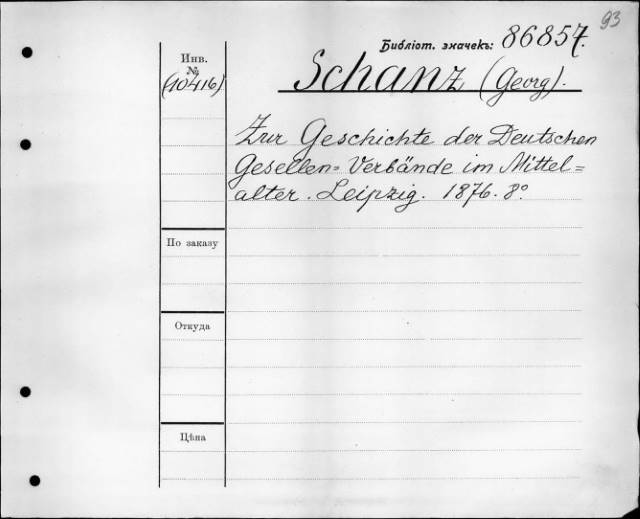 93
Библіот. значекъ: 86857.
Инв.
№
(10416)
Schanz (Georg).
Zur Geschichte der Deutschen
Gesellen= Verbände im Mittel=
alter. Leipzig. 1876. 8º
По заказу
Откуда
Цѣна